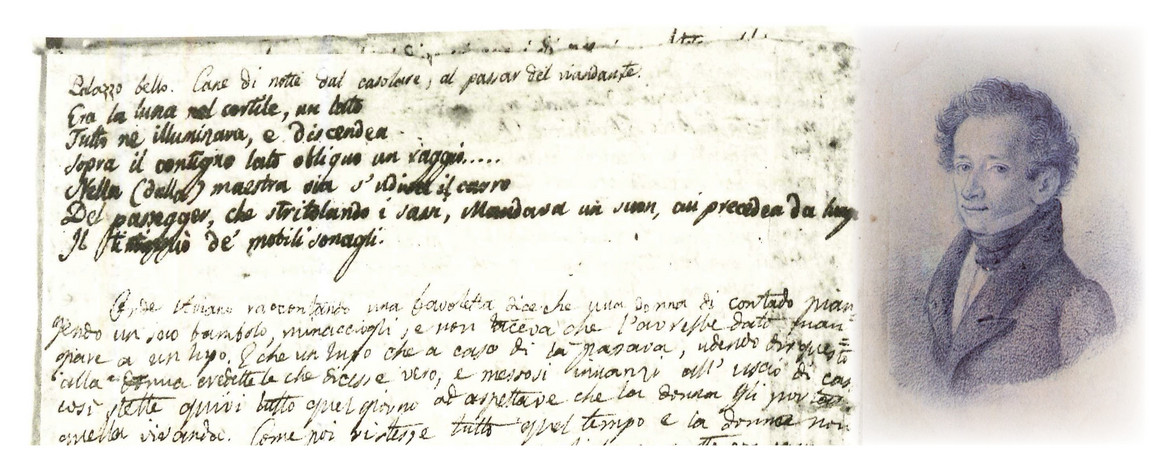 Palazzo bello. Cane di notte dal casolare, al passar del viandante.
Era la luna nel cortile, un lato
Tutto ne illuminava, e discendea
Sopra il contiguo lato obliquo un raggio.....
Nella (dalla) maestra via s'udiva il carro
Del passegger, che stritolando i sassi, Mandava un suon, cui precedea da lung
Il tintinnio de' mobili sonagli.
Onde Aviano raccontando una favoletta dice che una donna di contado pian=
gendo un suo bambolo, minacciogli se non taceva che l'avrebbe dato man=
giare a un lupo. E che un lupo che a caso di là passava, udendo dir questo
alla donna credettele che dicesse vero, e messosi innanzi all'uscio di cas
così stette quivi tutto quel giorno ad aspettare che la donna gli portasse
quella vivanda. Come poi vi stesse tutto quel tempo e la donna non